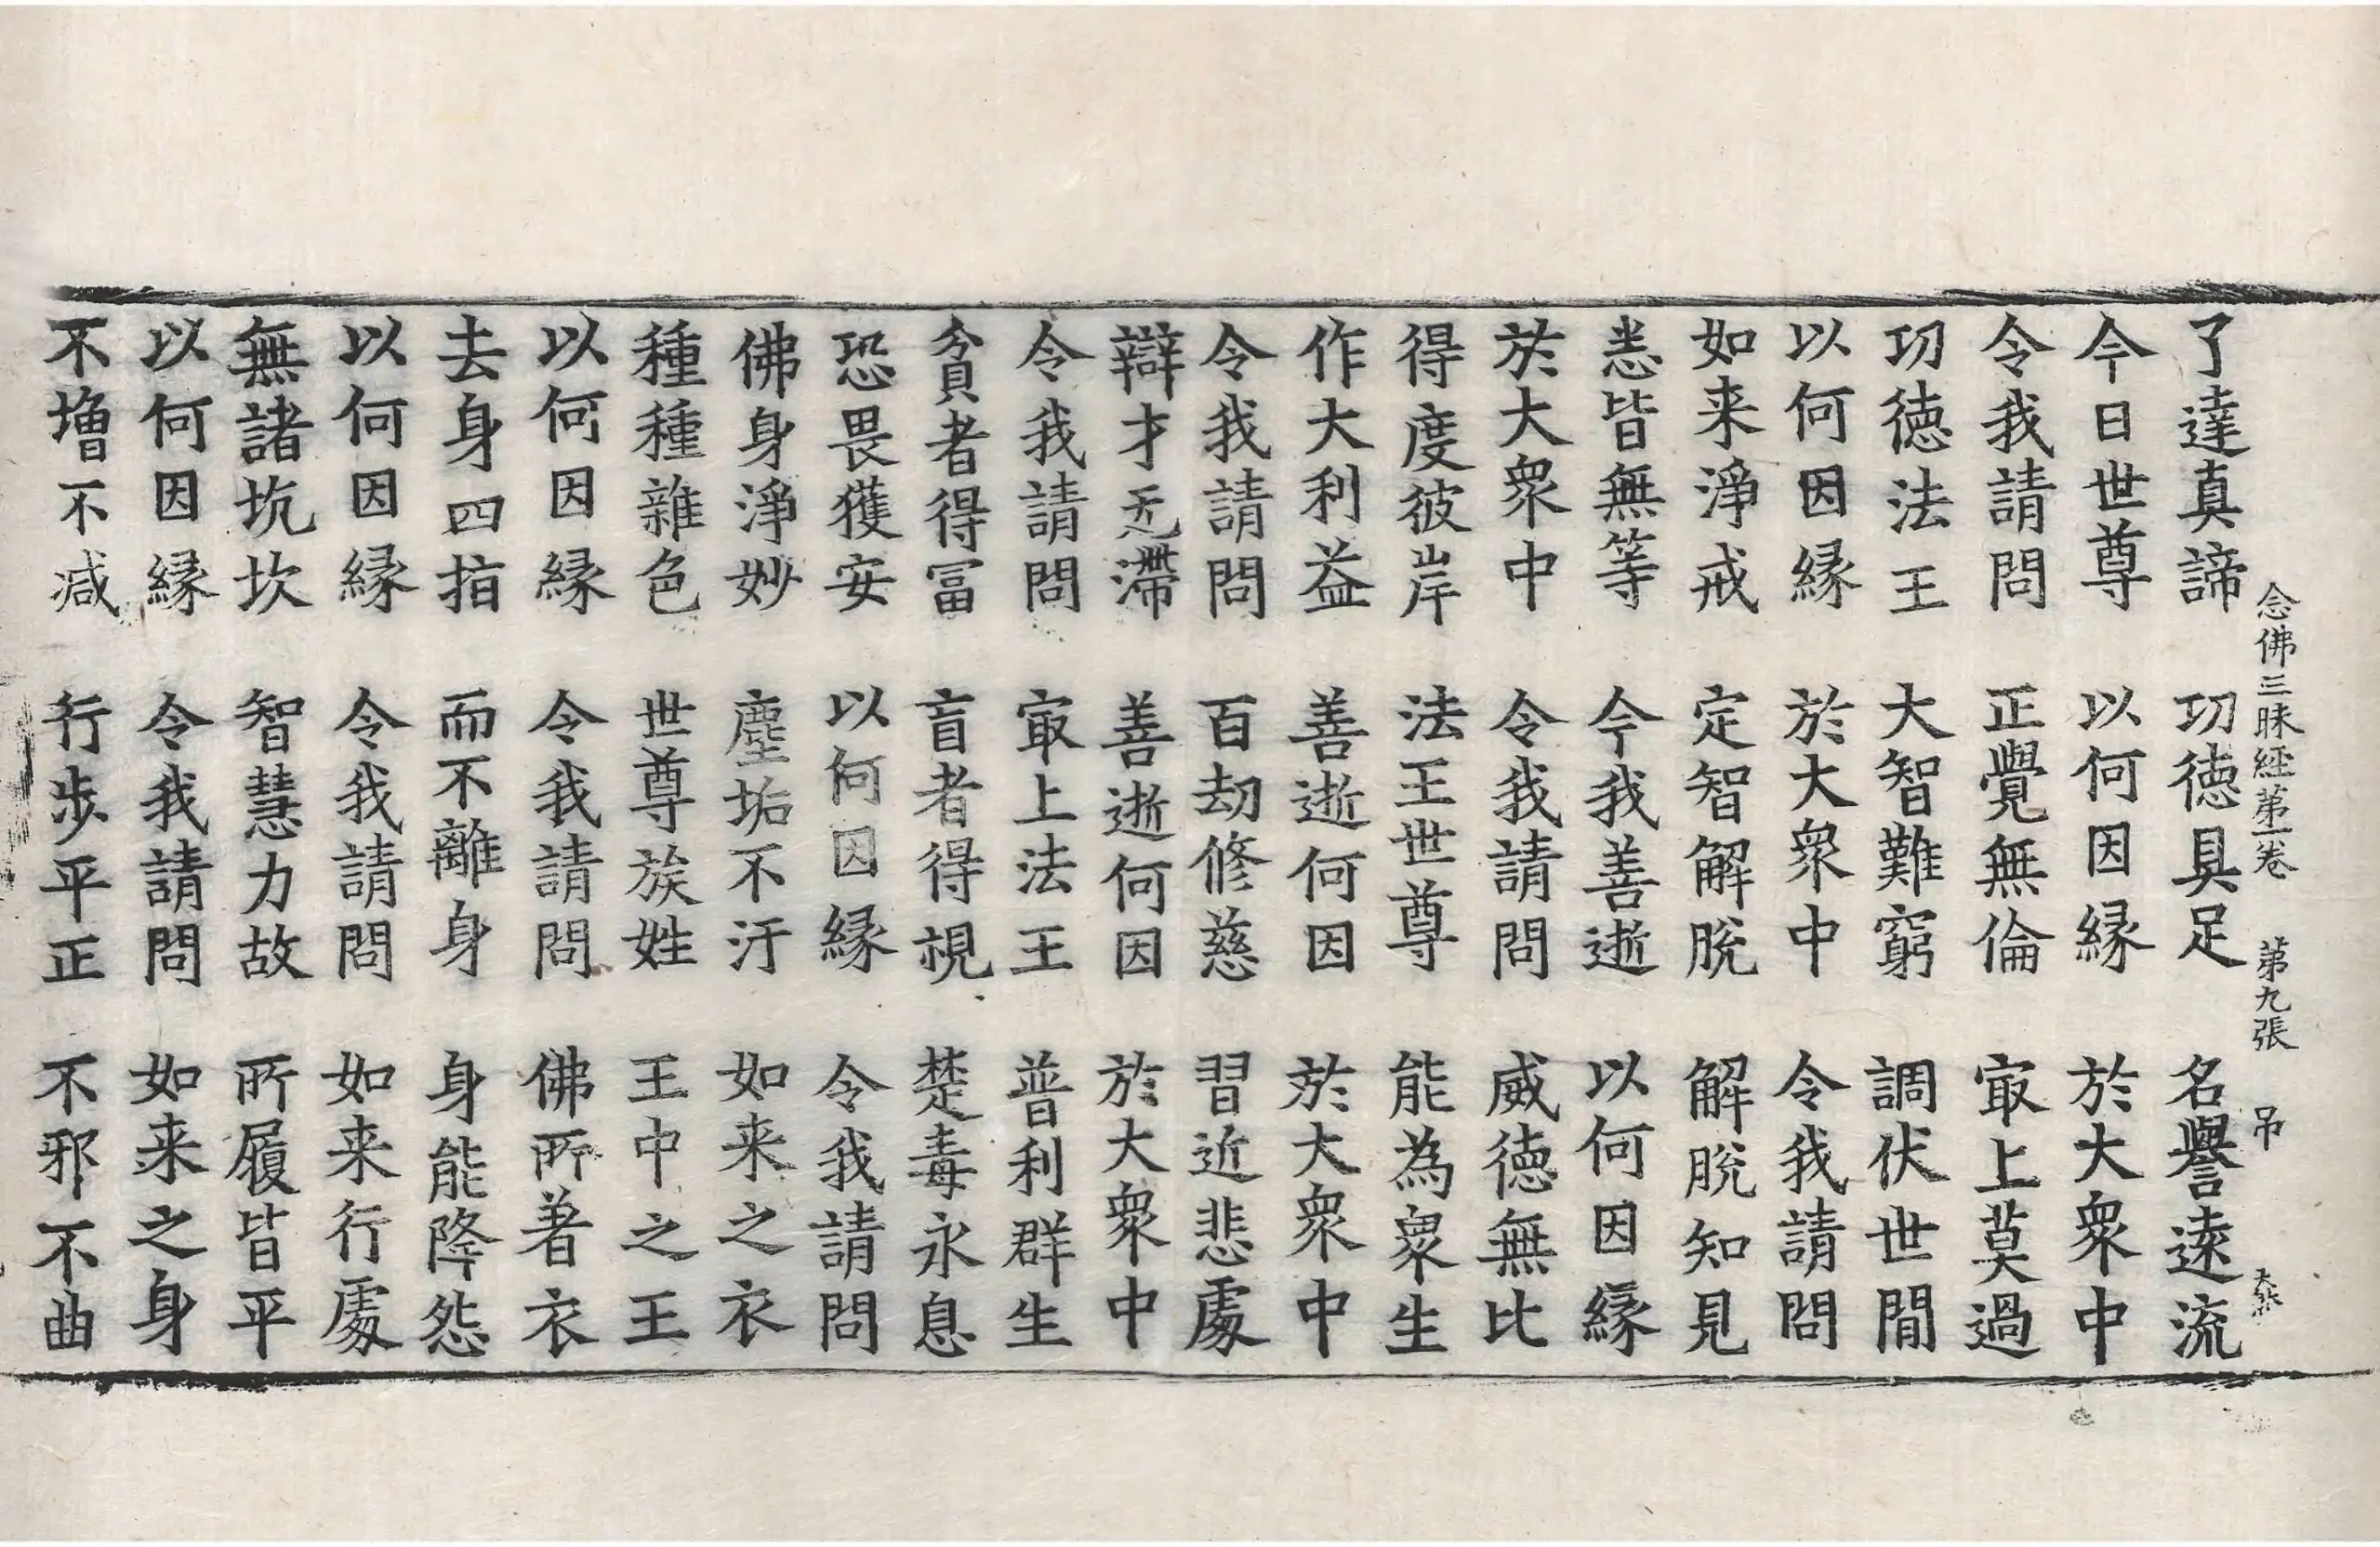 念佛三昧經第一卷 第九張 吊
了達真諦 功德具足 名譽遠流
今日世尊 以何因縁 於大衆中
令我請問 正覺無倫 㝡上莫過
功徳法王 大智難窮 調伏世間
以何因縁 於大衆中 令我請問
如来淨戒 定智解脫 解脫知見
悉皆無等 今我善逝 以何因縁
於大衆中 令我請問 威德無比
得度彼岸 法王世尊 能為衆生
作大利益 善逝何因 於大衆中
令我請問 百劫修慈 習近悲處
辯才无滯 善逝何因 於大衆中
令我請問 㝡上法王 普利群生
貧者得冨 盲者得視 楚毒永息
恐畏獲安 以何因縁 令我請問
佛身淨妙 塵垢不汙 如来之衣
種種雜色 世尊族姓 王中之王
以何因縁 令我請問 佛所著衣
去身四指 而不離身 身能降怨
以何因縁 令我請問 如来行處
無諸坑坎 智慧力故 所履皆平
以何因縁 令我請問 如来之身
不増不减 行步平正 不邪不曲